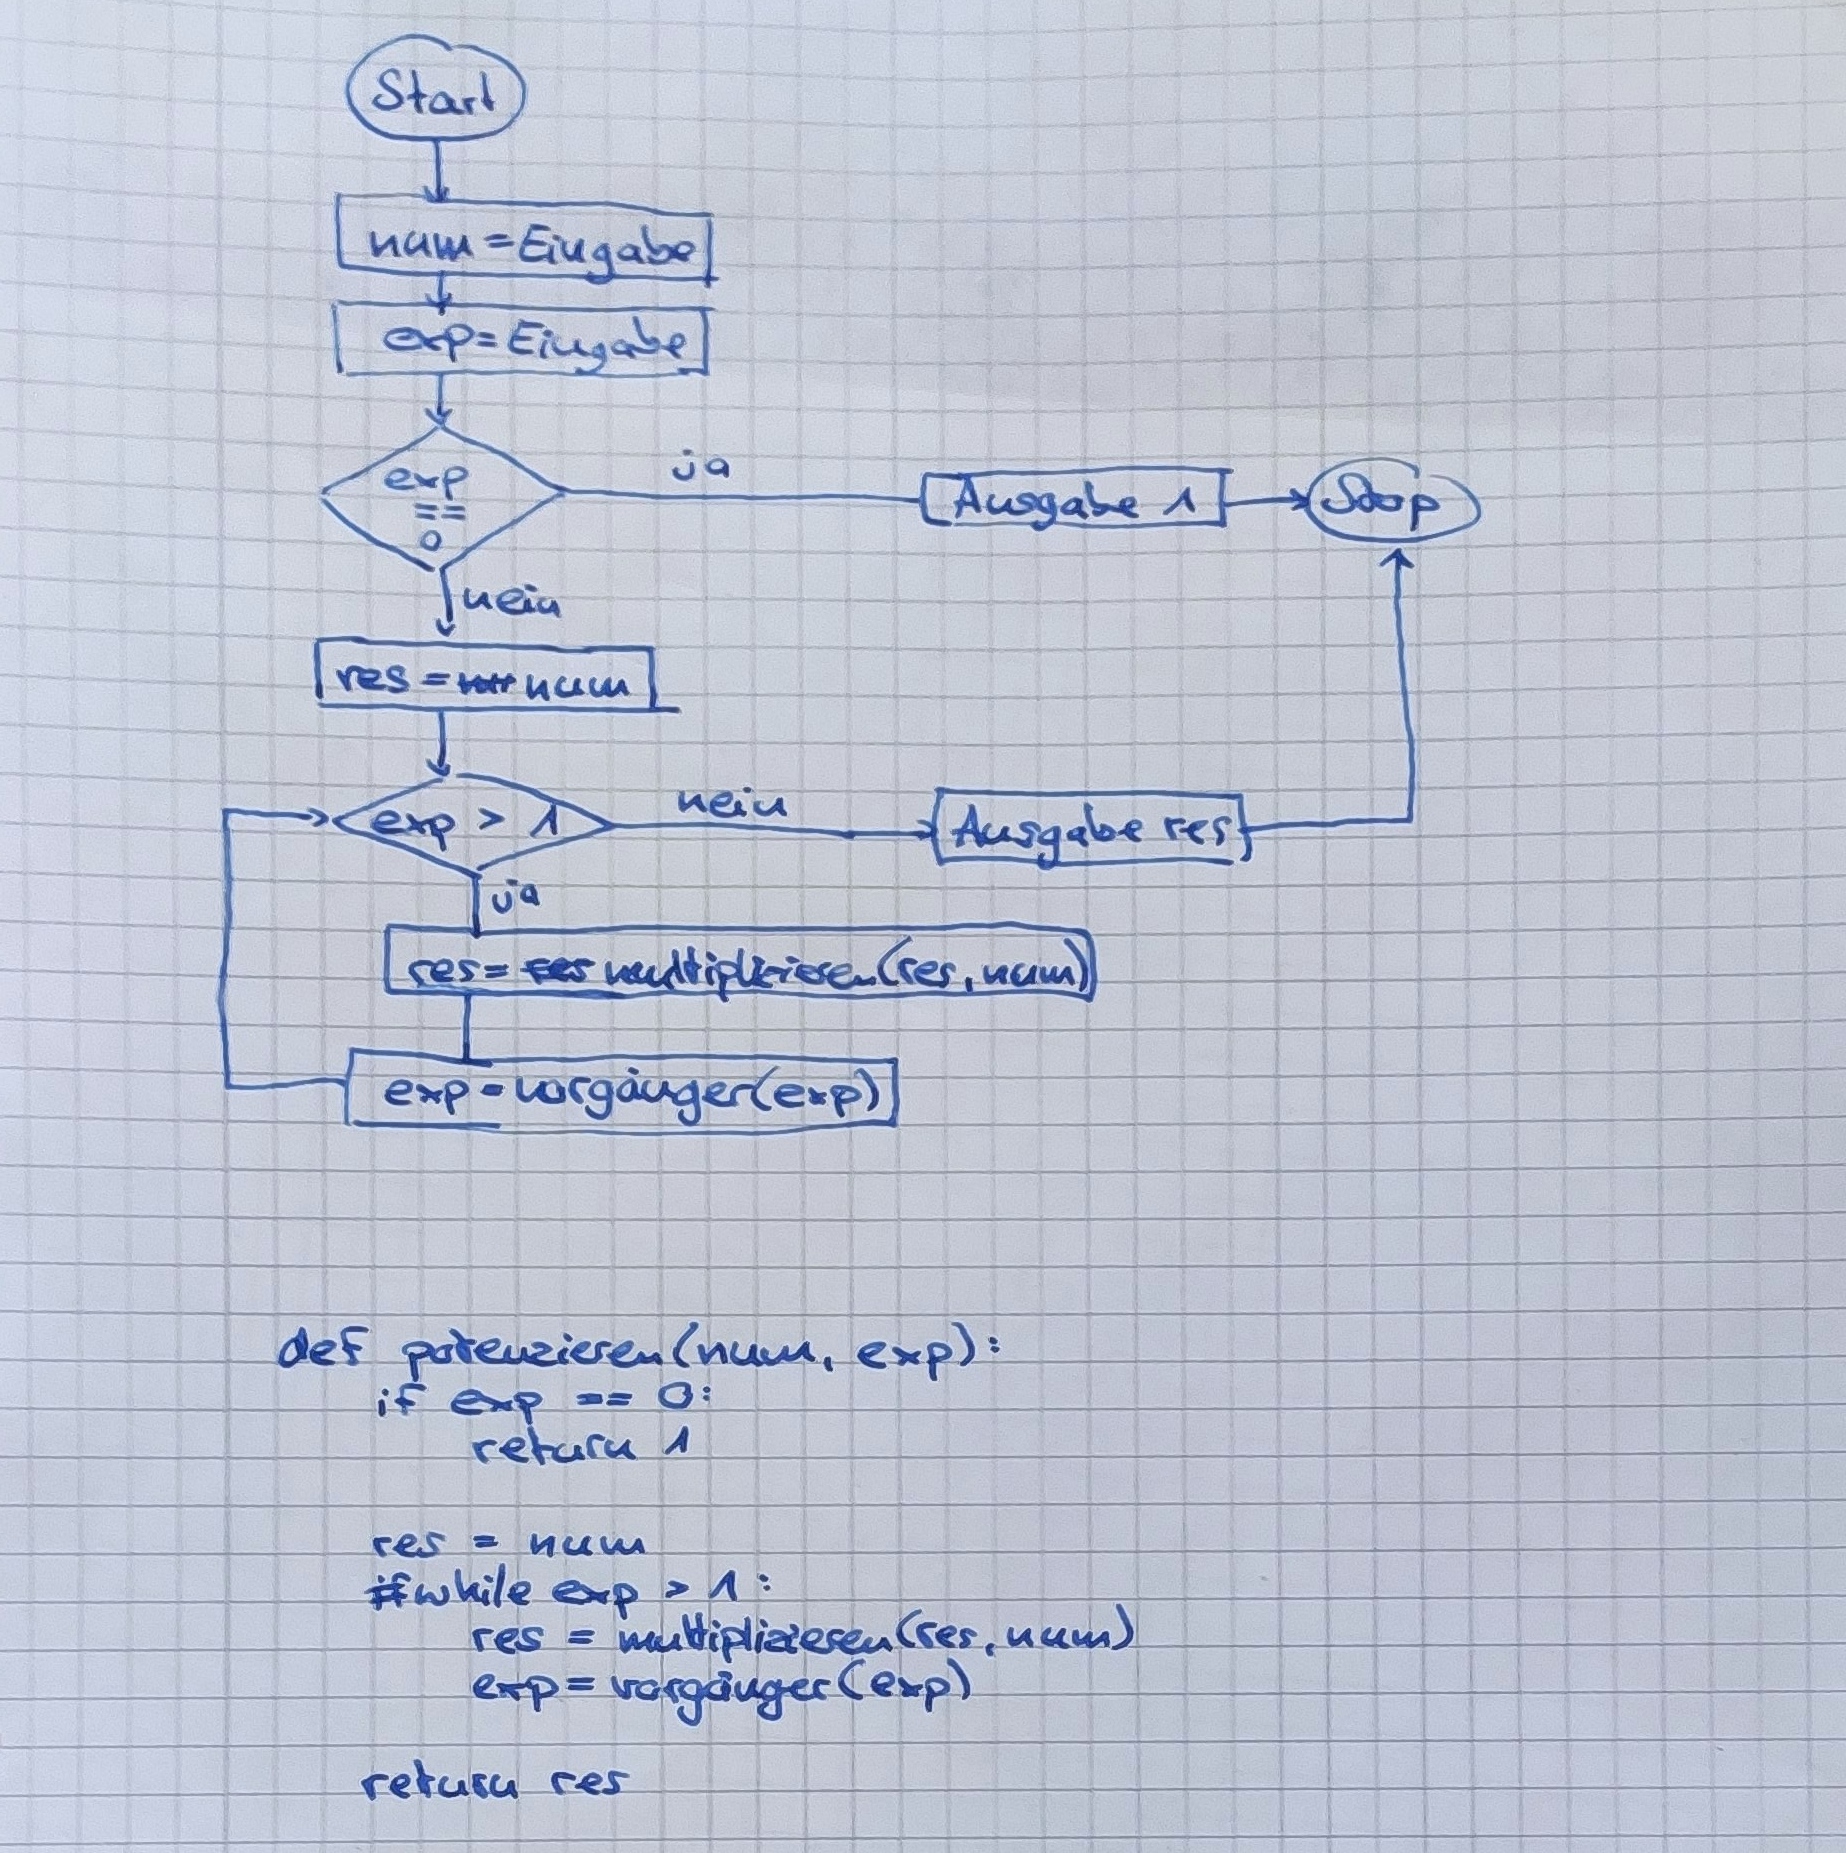 Start
num = Eingabe
exp = Eingabe
exp
==
0
ja
Ausgabe 1
Stop
nein
res = num
exp > 1
nein
Ausgabe res
ja
res = res multiplizieren(res, num)
exp = vorgänger(exp)
def potenzieren(num, exp):
if exp == 0:
return 1
res = num
if while exp > 1:
res = multiplizieren(res, num)
exp = vorgänger(exp)
return res